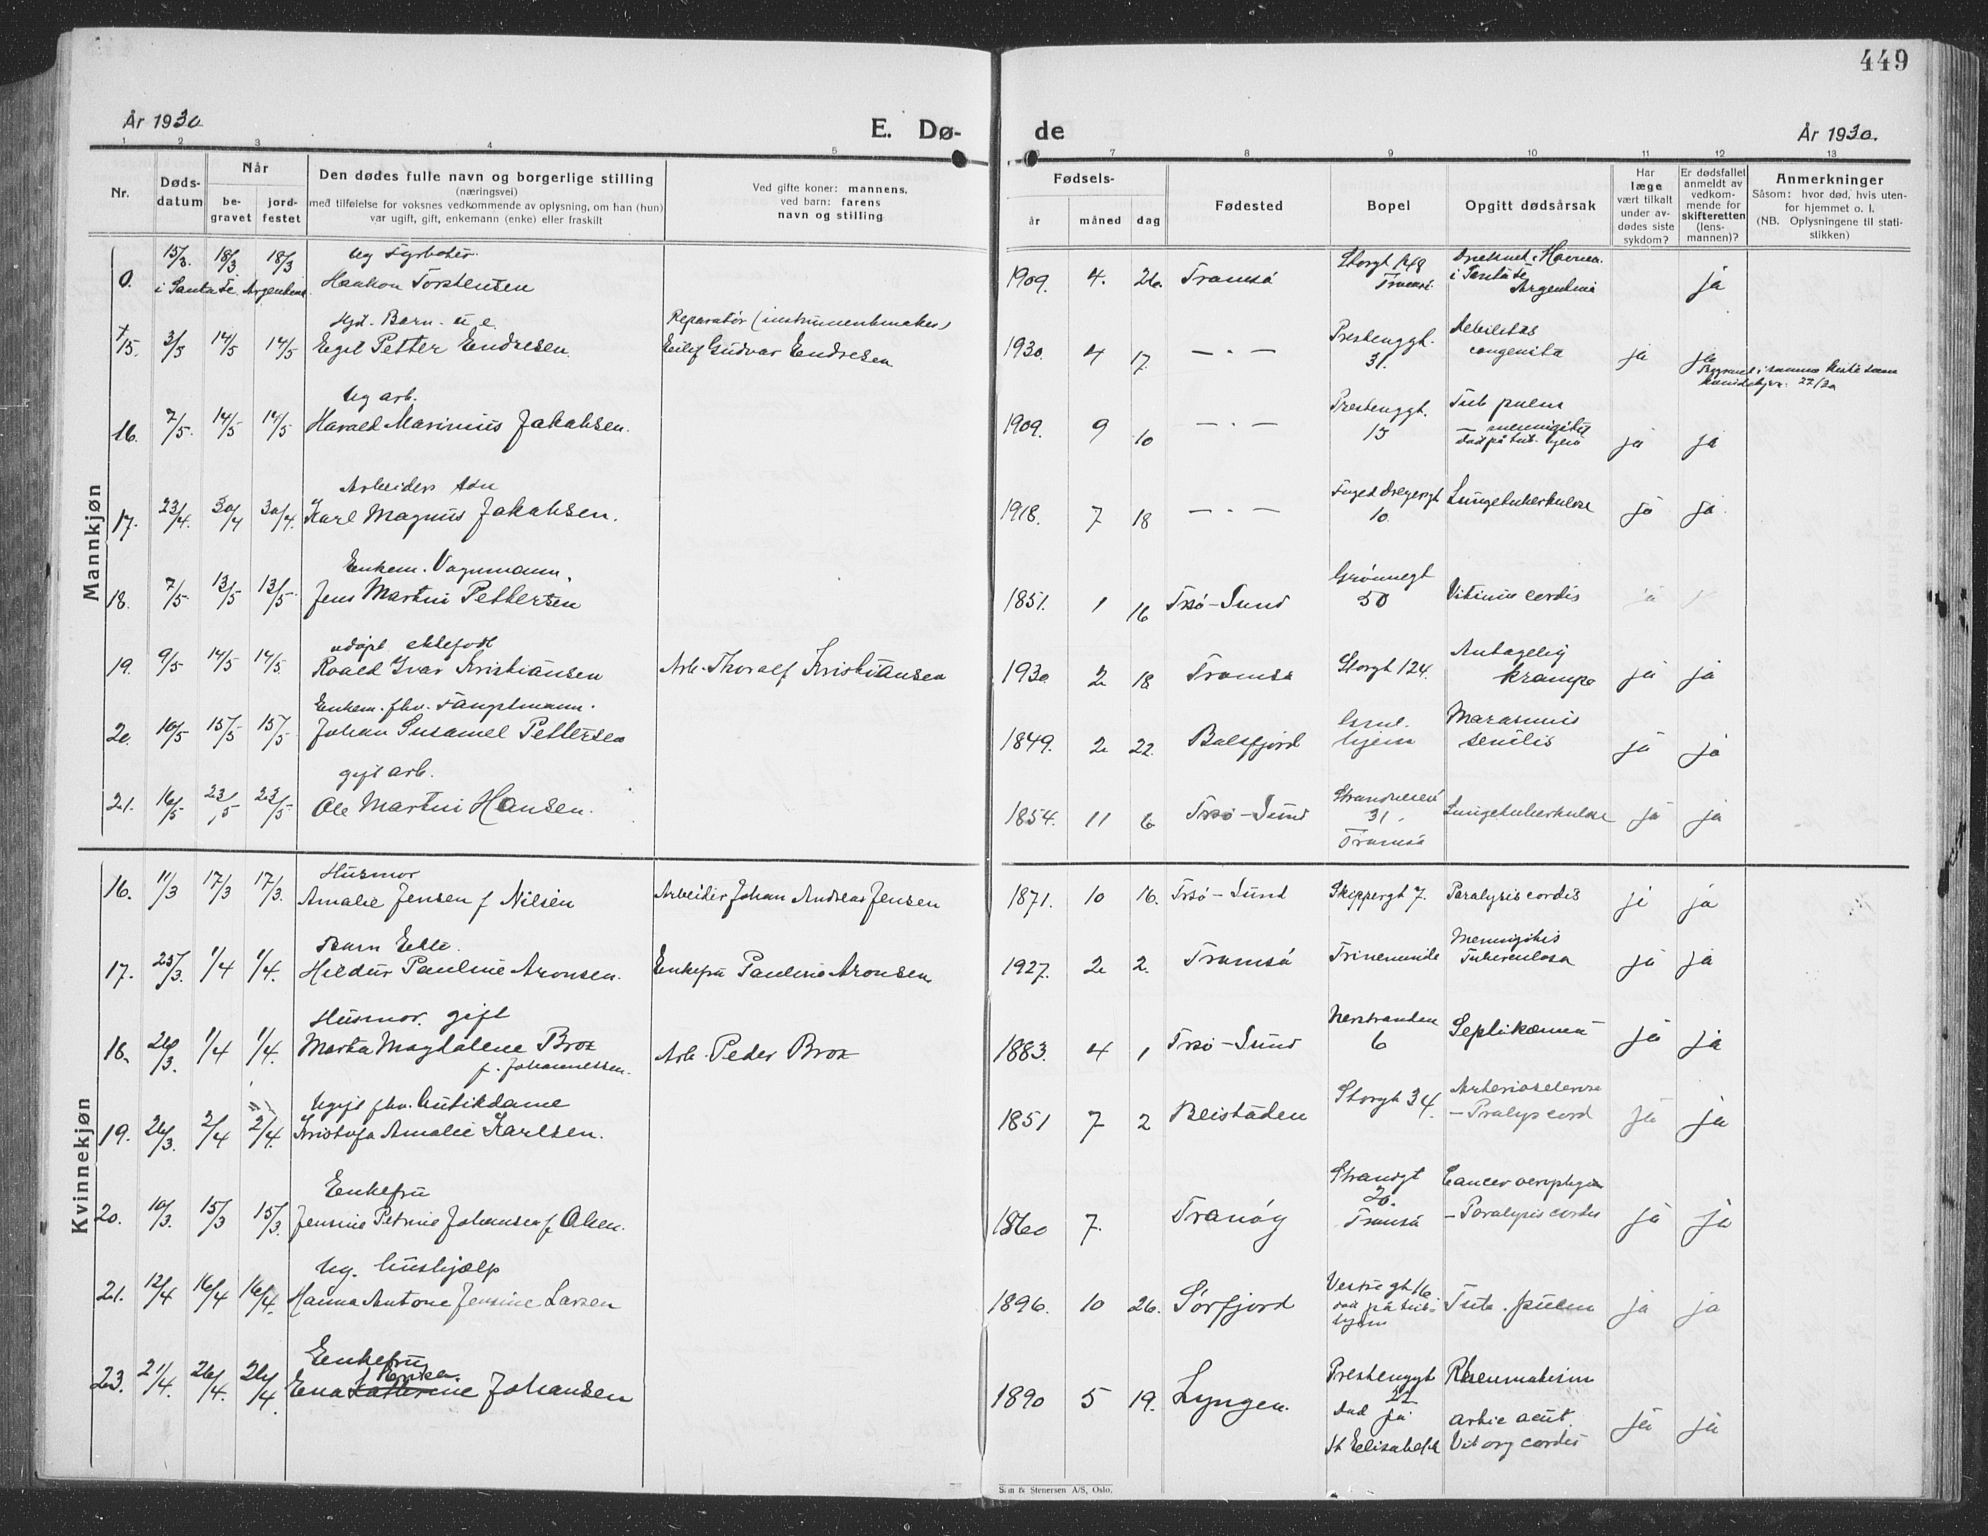 449
År 1930
E. Dø-
de
År 1930.
1 2 3 4 5 7 8 9 10 11 12 13
Nr.
Døds-
datum
Når
be-
gravet
jord-
festet
Den dødes fulle navn og borgerlige stilling
(næringsvei)
med tilføielse for voksnes vedkommende av oplysning, om han (hun)
var ugift, gift, enkemann (enke) eller fraskilt
Ved gifte koner: mannens,
ved barn: farens
navn og stilling
Fødsels-
år
måned
dag
Fødested
Bopel
Opgitt dødsårsak
Har
læge
vært tilkalt
under av-
dødes siste
sykdom?
Er dødsfallet
anmeldt av
vedkom-
mende for
skifteretten
(lens-
mannen)?
Anmerkninger
Såsom: hvor død, hvis uten-
for hjemmet o. l.
(NB. Oplysningene til stati-
stikken)
Mannkjøn
15/3. 18/3 18/3 Ug Fyrbøter Storgt 148
0. i Santa Fe, Argentina. Haakon Torstensen 1909. 4. 26. Tromsø Tromsø. i Santa Fe Argentina ja
Barn. Reparatør (instrumentmaker)
15. 3/5 14/5 14/5 Egil Petter Endresen Eilif Gudvar Endresen 1930. 4 17. — " — Prestenggt. 31. Debilitas congenita ja ja
Ug arb.
16. 7/5. 14/5 14/5 Harald Marinius Jakobsen. 1909. 9 10 — " — Prestenggt. 13 Tub pulm ja ja
Arbeider søn
17. 23/4. 30/4 30/4. Karl Magnus Jakobsen. 1918. 7 18 — " — 10. Lungetuberkulose ja ja.
Enkem. Vognmann.
18. 7/5 13/5 13/5 Jens Martin Pettersen 1851. 1 16 Trsø-Sund Grønnegt 50 Vitium cordis ja
adopt. ektefødt
19. 9/5 14/5 14/5. Roald Ivar Kristiansen Arb. Thoralf Kristiansen 1930 2 18 Tromsø Storgt 124. Antagelig krampe ja ja
Enkem. fhv.
20. 10/5 15/5 15/5 Johan Pettersen 1849. 2 22. Balsfjord hjem Marasmus senilis ja ja
gift arb.
21. 16/5 23/5 23/5 Ole Martin Hansen. 1854. 11 6 Trsø-Sund 31, Tromsø Lungetuberkulose ja ja
Kvinnekjøn
Husmor
16. 11/3 17/3 17/3. Amalie Jensen f Nilsen Arbeider Johan Andreas Jensen 1871. 10 16. Trsø-Sund Skippergt 7. Paralysis cordis ja ja
Barn Ekte.
17. 25/3. 1/4 1/4. Hildur Pauline Aronsen. Enkefru Pauline Aronsen 1927. 2 2. Tromsø Meningitis Tuberculosa ja ja
Husmor. gift
18. 26/3. 1/4 1/4. Marta Magdalene Brox f. Johannessen. Arb. Peder Brox 1883. 4 1 Trsø-Sund Nerstranden 6 Septikæmia ja ja
Ugift fhv. butikdame
19. 26/3. 2/4 2/4. Kristofa Amalie Karlsen. 1851 7 2 Beistaden Storgt 34. Arteriosclerose - Paralys cord ja ja
Enkefru
20. 10/3. 15/3 15/3. Jensine Petrine Johansen f Olsen. 1860 7. Tranøy Strandgt 20. Tromsø Cancer - Paralysis cordis ja ja
Ug. hushjælp
21. 12/4 16/4 16/4. Hanna Antone Jensine Larsen 1896. 10 26. Sørfjord Vestregt 16 død på tub. hjem Tub. pulm ja ja
Enkefru
23. 21/4. 26/4. 26/4. Ena Johansen 1890 5 19. Lyngen. Prestenggt 22 død på St Elisabeth Rheumatism artic acut. Vit org cordis ja ja
Sem & Stenersen A/S, Oslo.